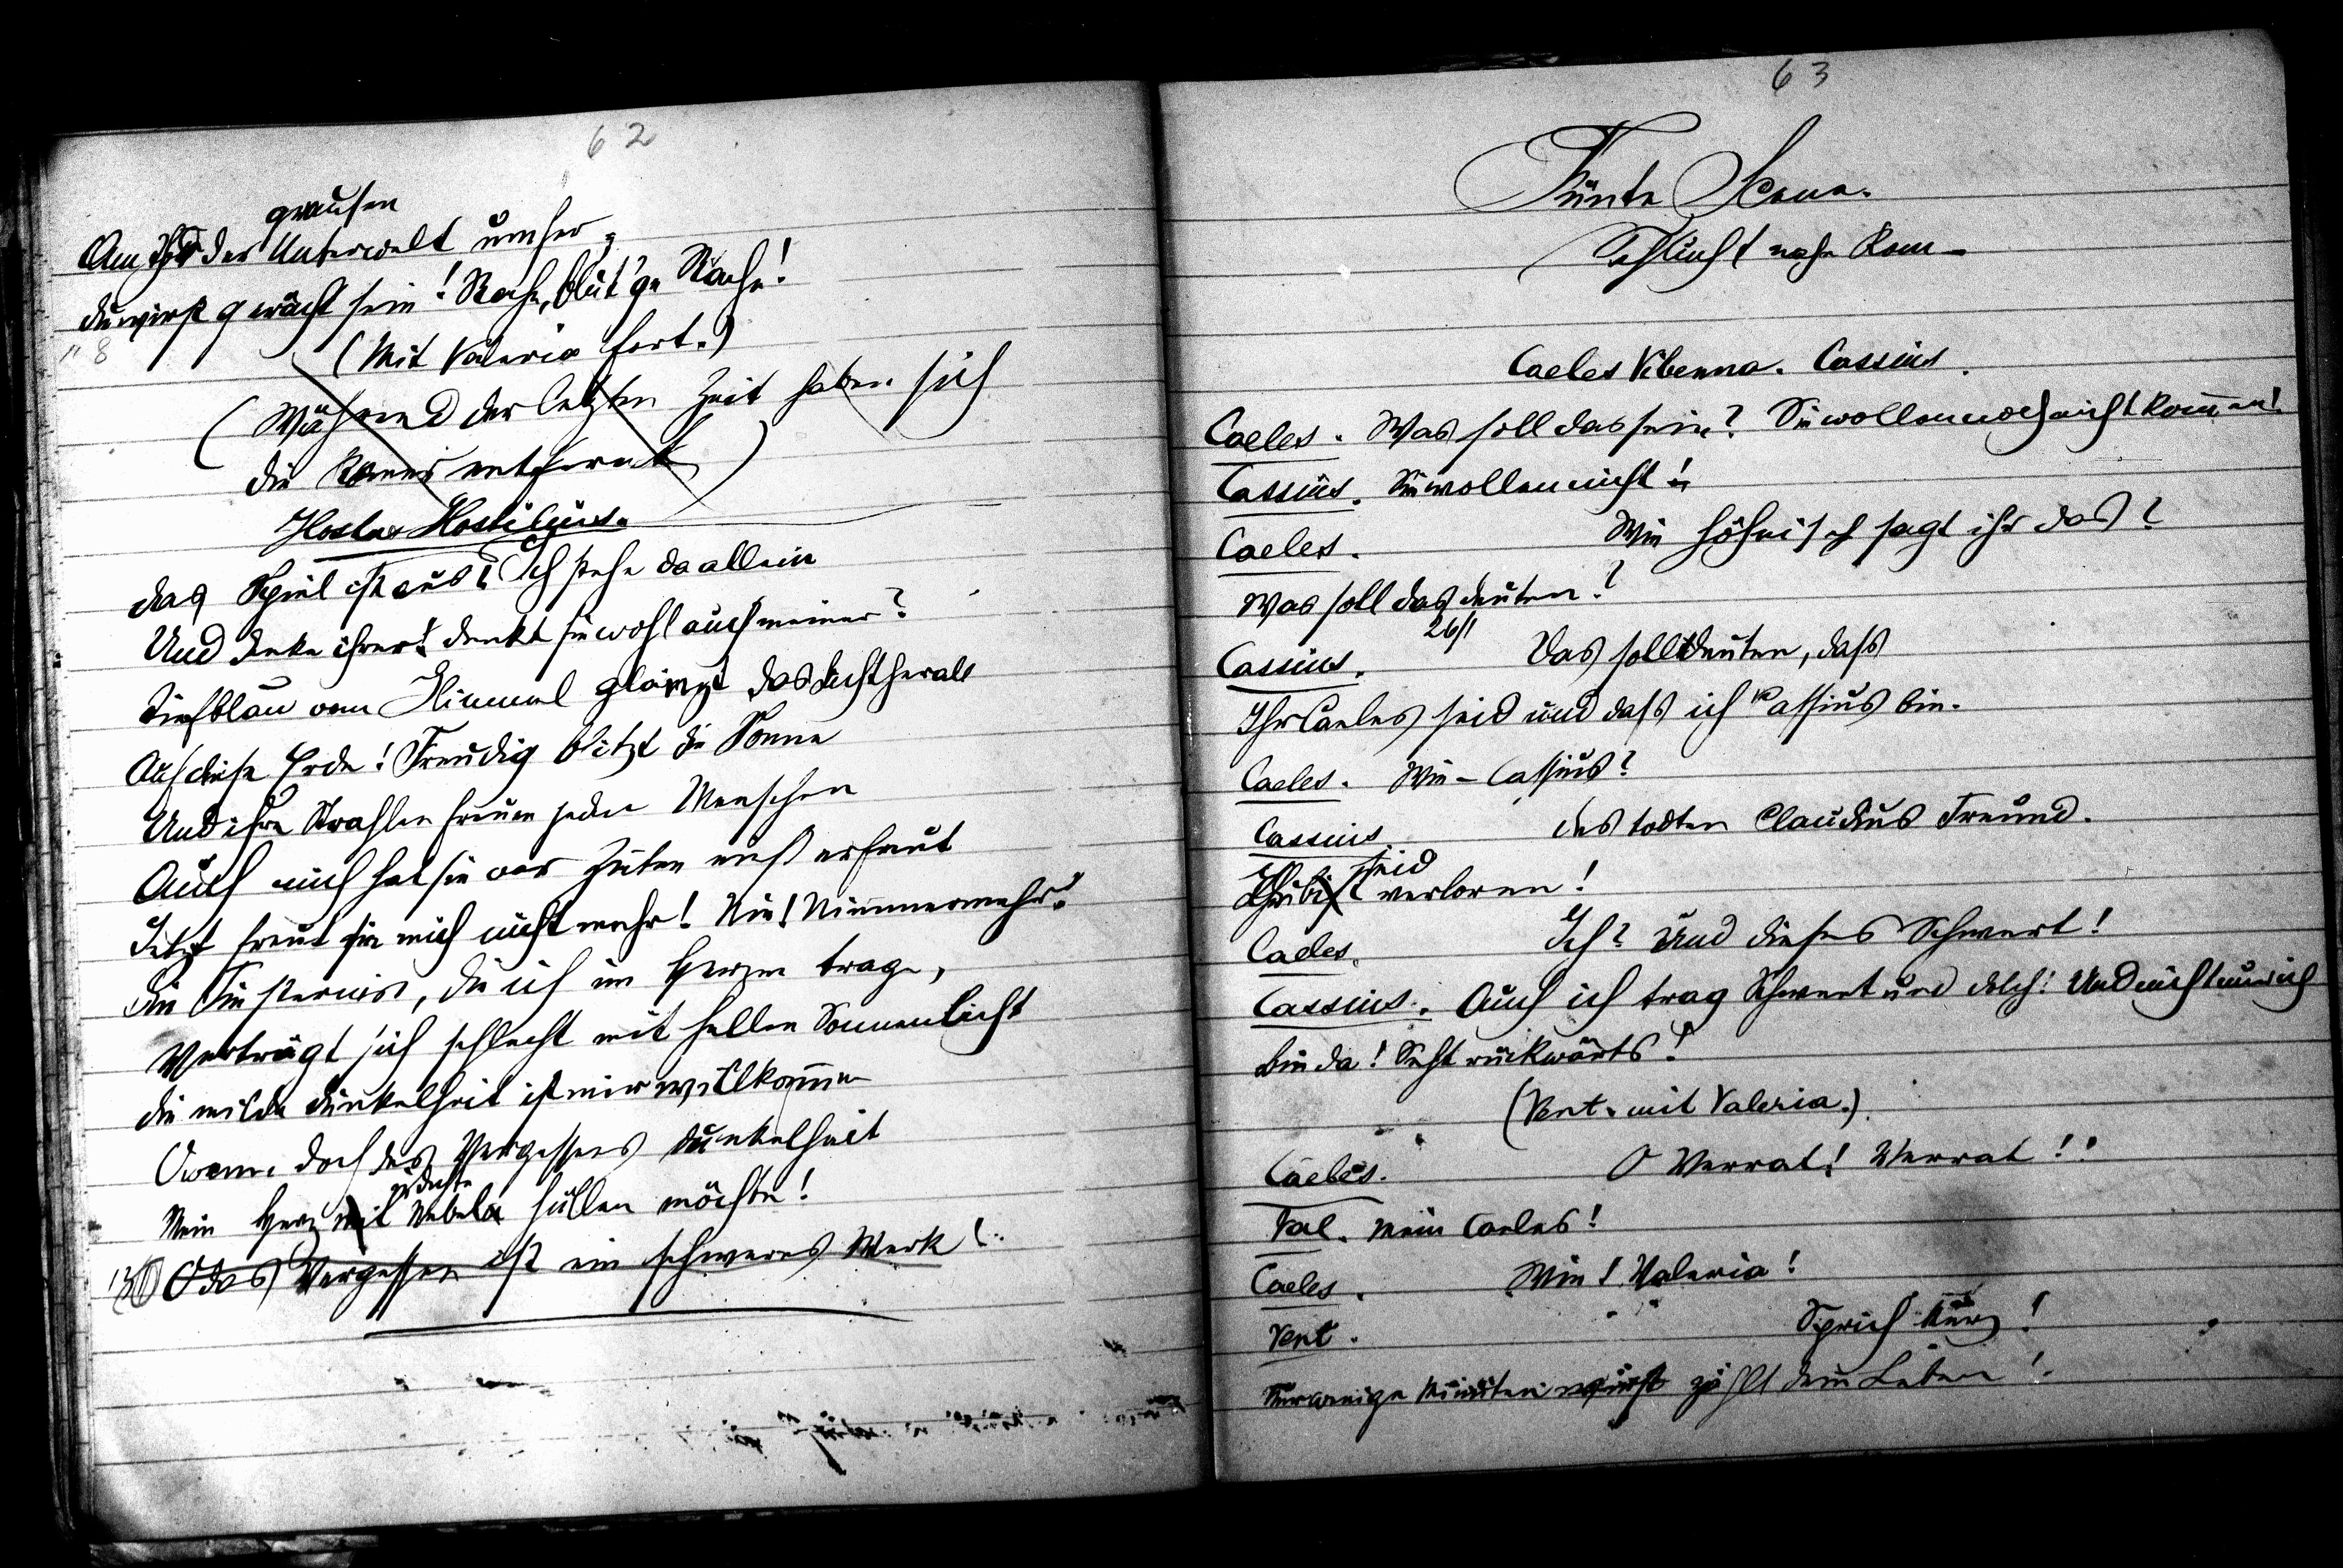 62
grausen
Am Thor der Unterwelt umher,
du wirst gerächt sein! Rache, blut'ge Rache!
"8
(Mit Valeria fort.)
(Während der letzten Zeit haben sich
die Römer entfernt)
Hostus Hostilius.
das Spiel ist aus! Ich stehe da allein
Und denke ihrer! denkt sie wohl auch meiner?
Tiefblau vom Himmel glänzt das Licht herab
Auf diese Erde! Freudig blitzt die Sonne
Und ihre Strahlen freuen jeden Menschen
Auch mich hat sie vor Zeiten einst erfreut
Jetzt freut sie mich nicht mehr! Nie! Nimmermehr!
die Finsternis, die ich im Herzen trage,
Verträgt sich schlecht mit hellen Sonnenlicht
die milde dunkelheit ist mir willkommen
O wenn doch des Vergessens dunkelheit
Mein Herz mit Nebeln hüllen möchte!
O das Vergessen ist ein schweres Werk!
63
Fünte Scene.
Schlucht nahe Rom –
Caeles Vibenna. Cassius.
Caeles. Was soll das sein? Sie wollen noch nicht kommen!
Cassius. Sie wollen nicht!
Caeles. Wie höhnisch sagt ihr das?
Was soll das deuten?
26/1
Cassius. Das soll deuten, dass
Ihr Caeles seid und dass ich Cassius bin.
Caeles. Wie – Cassius?
Cassius. des todten Claudius Freund.
Ihr seid verloren!
Caeles. Ich? Und dieses Schwert!
Cassius. Auch ich trag Schwert und dolch! Und nicht nur ich
bin da! Seht rückwärts!
(Vent. mit Valeria.)
Caeles. O Verrat! Verrat!!
Val. Mein Caeles!
Caeles. Wie! Valeria!
Vent. Sprich kurz!
Nur wenige Minuten zählt dein Leben!